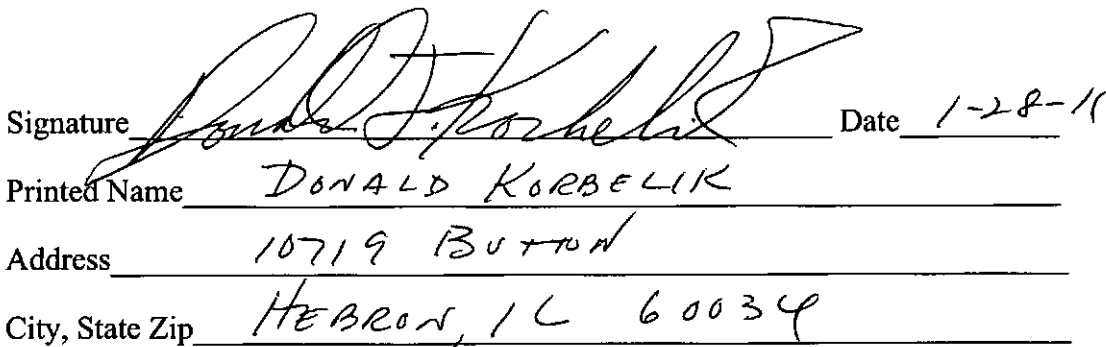 Signature Donald J. Korbelik Date 1-28-11
Printed Name DONALD KORBELIK
Address 10719 BUTTON
City, State Zip HEBRON, IL 60034